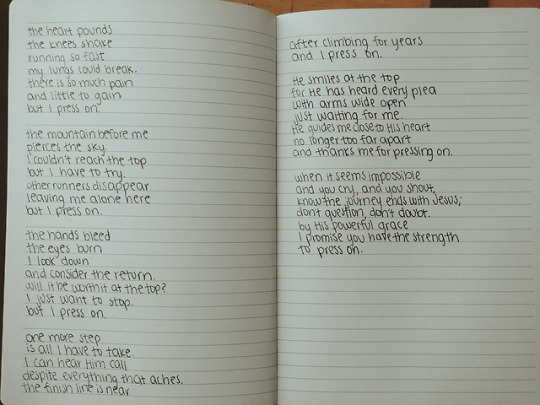 the heart pounds
the knees shake
running so fast
my lungs could break.
there is so much pain
and little to gain
but I press on.
the mountain before me
pierces the sky.
I couldn't reach the top
but I have to try.
other runners disappear
leaving me alone here
but I press on.
the hands bleed
the eyes burn
I look down
and consider the return.
will it be worth it at the top?
I just want to stop.
but I press on.
one more step
is all I have to take.
I can hear Him call
despite everything that aches.
the finish line is near
after climbing for years
and I press on.
He smiles at the top
for He has heard every plea
with arms wide open
just waiting for me.
He guides me close to His heart
no longer too far apart
and thanks me for pressing on.
when it seems impossible
and you cry, and you shout,
know the journey ends with Jesus;
don't question, don't doubt.
by His powerful grace
I promise you have the strength
to press on.